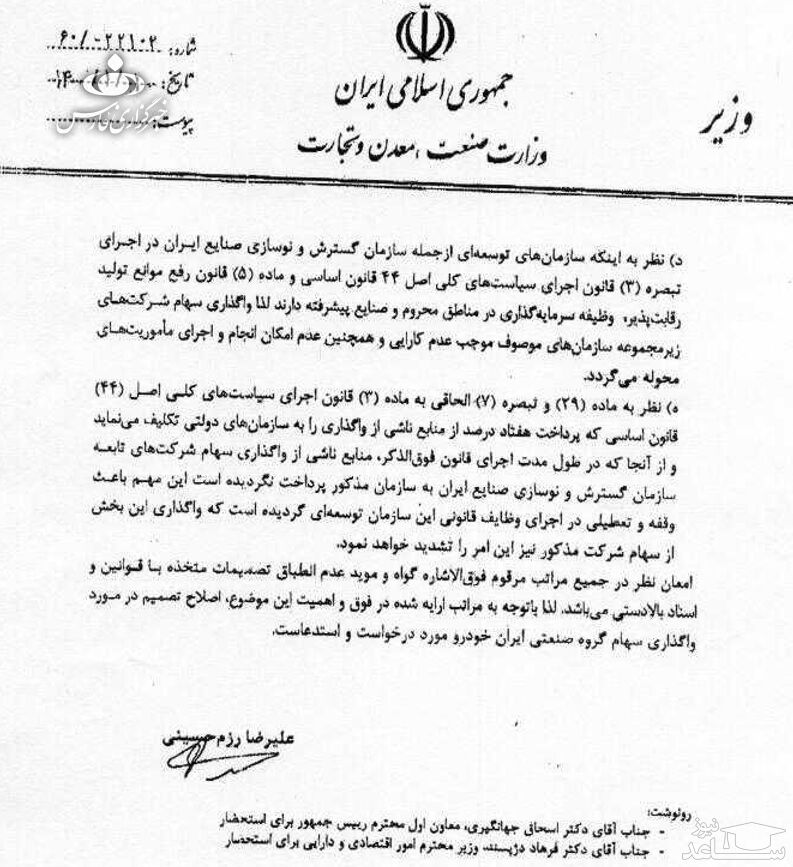 جمهوری اسلامی ایران
وزارت صنعت، معدن و تجارت
وزیر
شماره: ۶۰/۰۲۲۱۰۲
تاریخ:
پیوست:
خبرگزاری فارس
د) نظر به اینکه سازمان‌های توسعه‌ای ازجمله سازمان گسترش و نوسازی صنایع ایران در اجرای
تبصره (۳) قانون اجرای سیاست‌های کلی اصل ۴۴ قانون اساسی و ماده (۵) قانون رفع موانع تولید
رقابت‌پذیر، وظیفه سرمایه‌گذاری در مناطق محروم و صنایع پیشرفته دارند لذا واگذاری سهام شرکت‌های
زیرمجموعه سازمان‌های موصوف موجب عدم کارایی و همچنین عدم امکان انجام و اجرای مأموریت‌های
محوله می‌گردد.
ه) نظر به ماده (۲۹) و تبصره (۷) الحاقی به ماده (۳) قانون اجرای سیاست‌های کلی اصل (۴۴)
قانون اساسی که پرداخت هفتاد درصد از منابع ناشی از واگذاری را به سازمان‌های دولتی تکلیف می‌نماید
و از آنجا که در طول مدت اجرای قانون فوق‌الذکر، منابع ناشی از واگذاری سهام شرکت‌های تابعه
سازمان گسترش و نوسازی صنایع ایران به سازمان مذکور پرداخت نگردیده است این مهم باعث
وقفه و تعطیلی در اجرای وظایف قانونی این سازمان توسعه‌ای گردیده است که واگذاری این بخش
از سهام شرکت مذکور نیز این امر را تشدید خواهد نمود.
امعان نظر در جمیع مراتب مرقوم فوق‌الاشاره گواه و موید عدم انطباق تصمیمات متخذه با قوانین و
اسناد بالادستی می‌باشد. لذا باتوجه به مراتب ارایه شده در فوق و اهمیت این موضوع، اصلاح تصمیم در مورد
واگذاری سهام گروه صنعتی ایران خودرو مورد درخواست و استدعاست.
علیرضا رزم حسینی
رونوشت:
- جناب آقای دکتر اسحاق جهانگیری، معاون اول محترم رییس جمهور برای استحضار
- جناب آقای دکتر فرهاد دژپسند، وزیر محترم امور اقتصادی و دارایی برای استحضار
ساعد نیوز